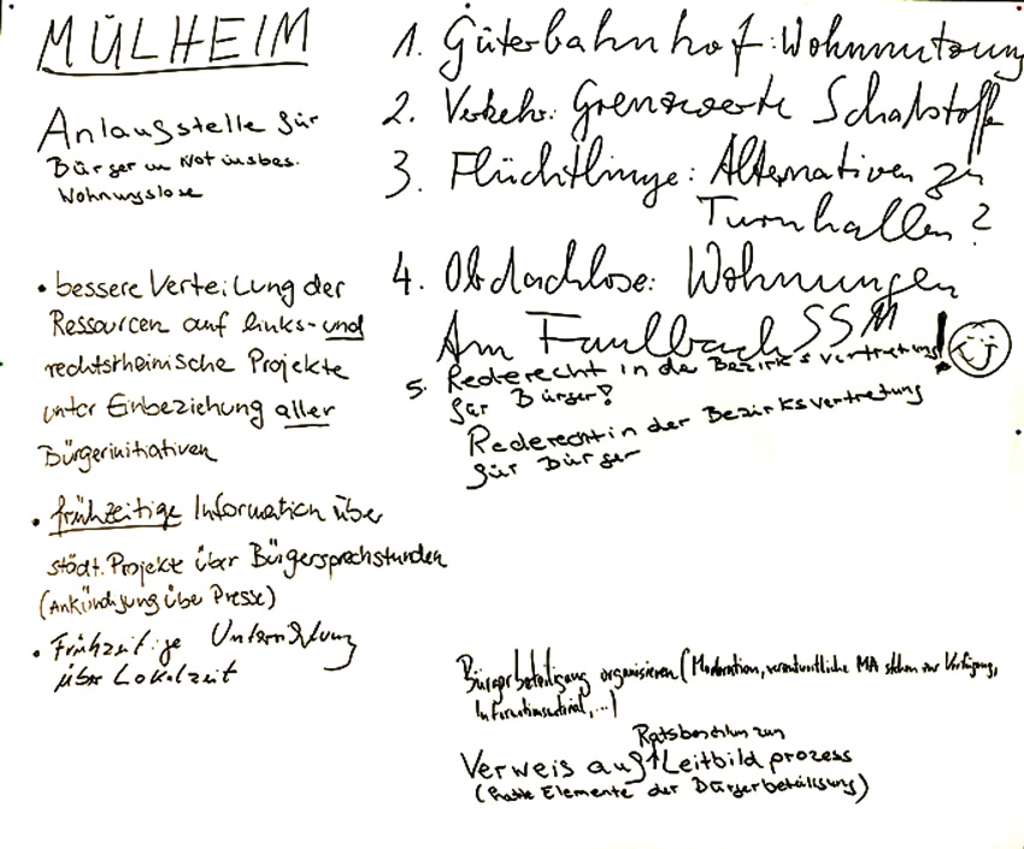 MÜLHEIM
Anlaufstelle für
Bürger in Not insbes.
Wohnungslose
• bessere Verteilung der
Ressourcen auf links- und
rechtsrheinische Projekte
unter Einbeziehung aller
Bürgerinitiativen
• frühzeitige Information über
städt. Projekte über Bürgersprechstunden
(Ankündigung über Presse)
• Frühzeitige Unterrichtung
über Lokalzeit
1. Güterbahnhof: Wohnnutzung
2. Verkehr: Grenzwerte Schadstoffe
3. Flüchtlinge: Alternativen zu
Turnhallen?
4. Obdachlose: Wohnungen
Am Faulbach SSM
5. Rederecht in der Bezirksvertretung!
für Bürger!
Rederecht in der Bezirksvertretung
für Bürger
Bürgerbeteiligung organisieren (Moderation, verantwortliche MA stehen zur Verfügung,
Informationsmaterial, ...)
Ratsbeschluss zum
Verweis auf ↑ Leitbildprozess
(hatte Elemente der Bürgerbeteiligung)